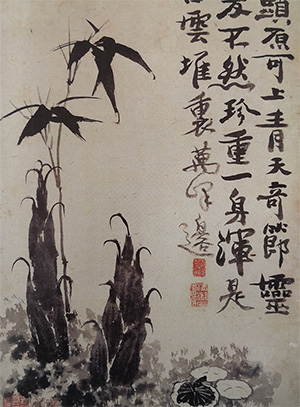 頭原可上青天奇節靈
反不然珍重一身渾是
雲堆裏萬峰邊